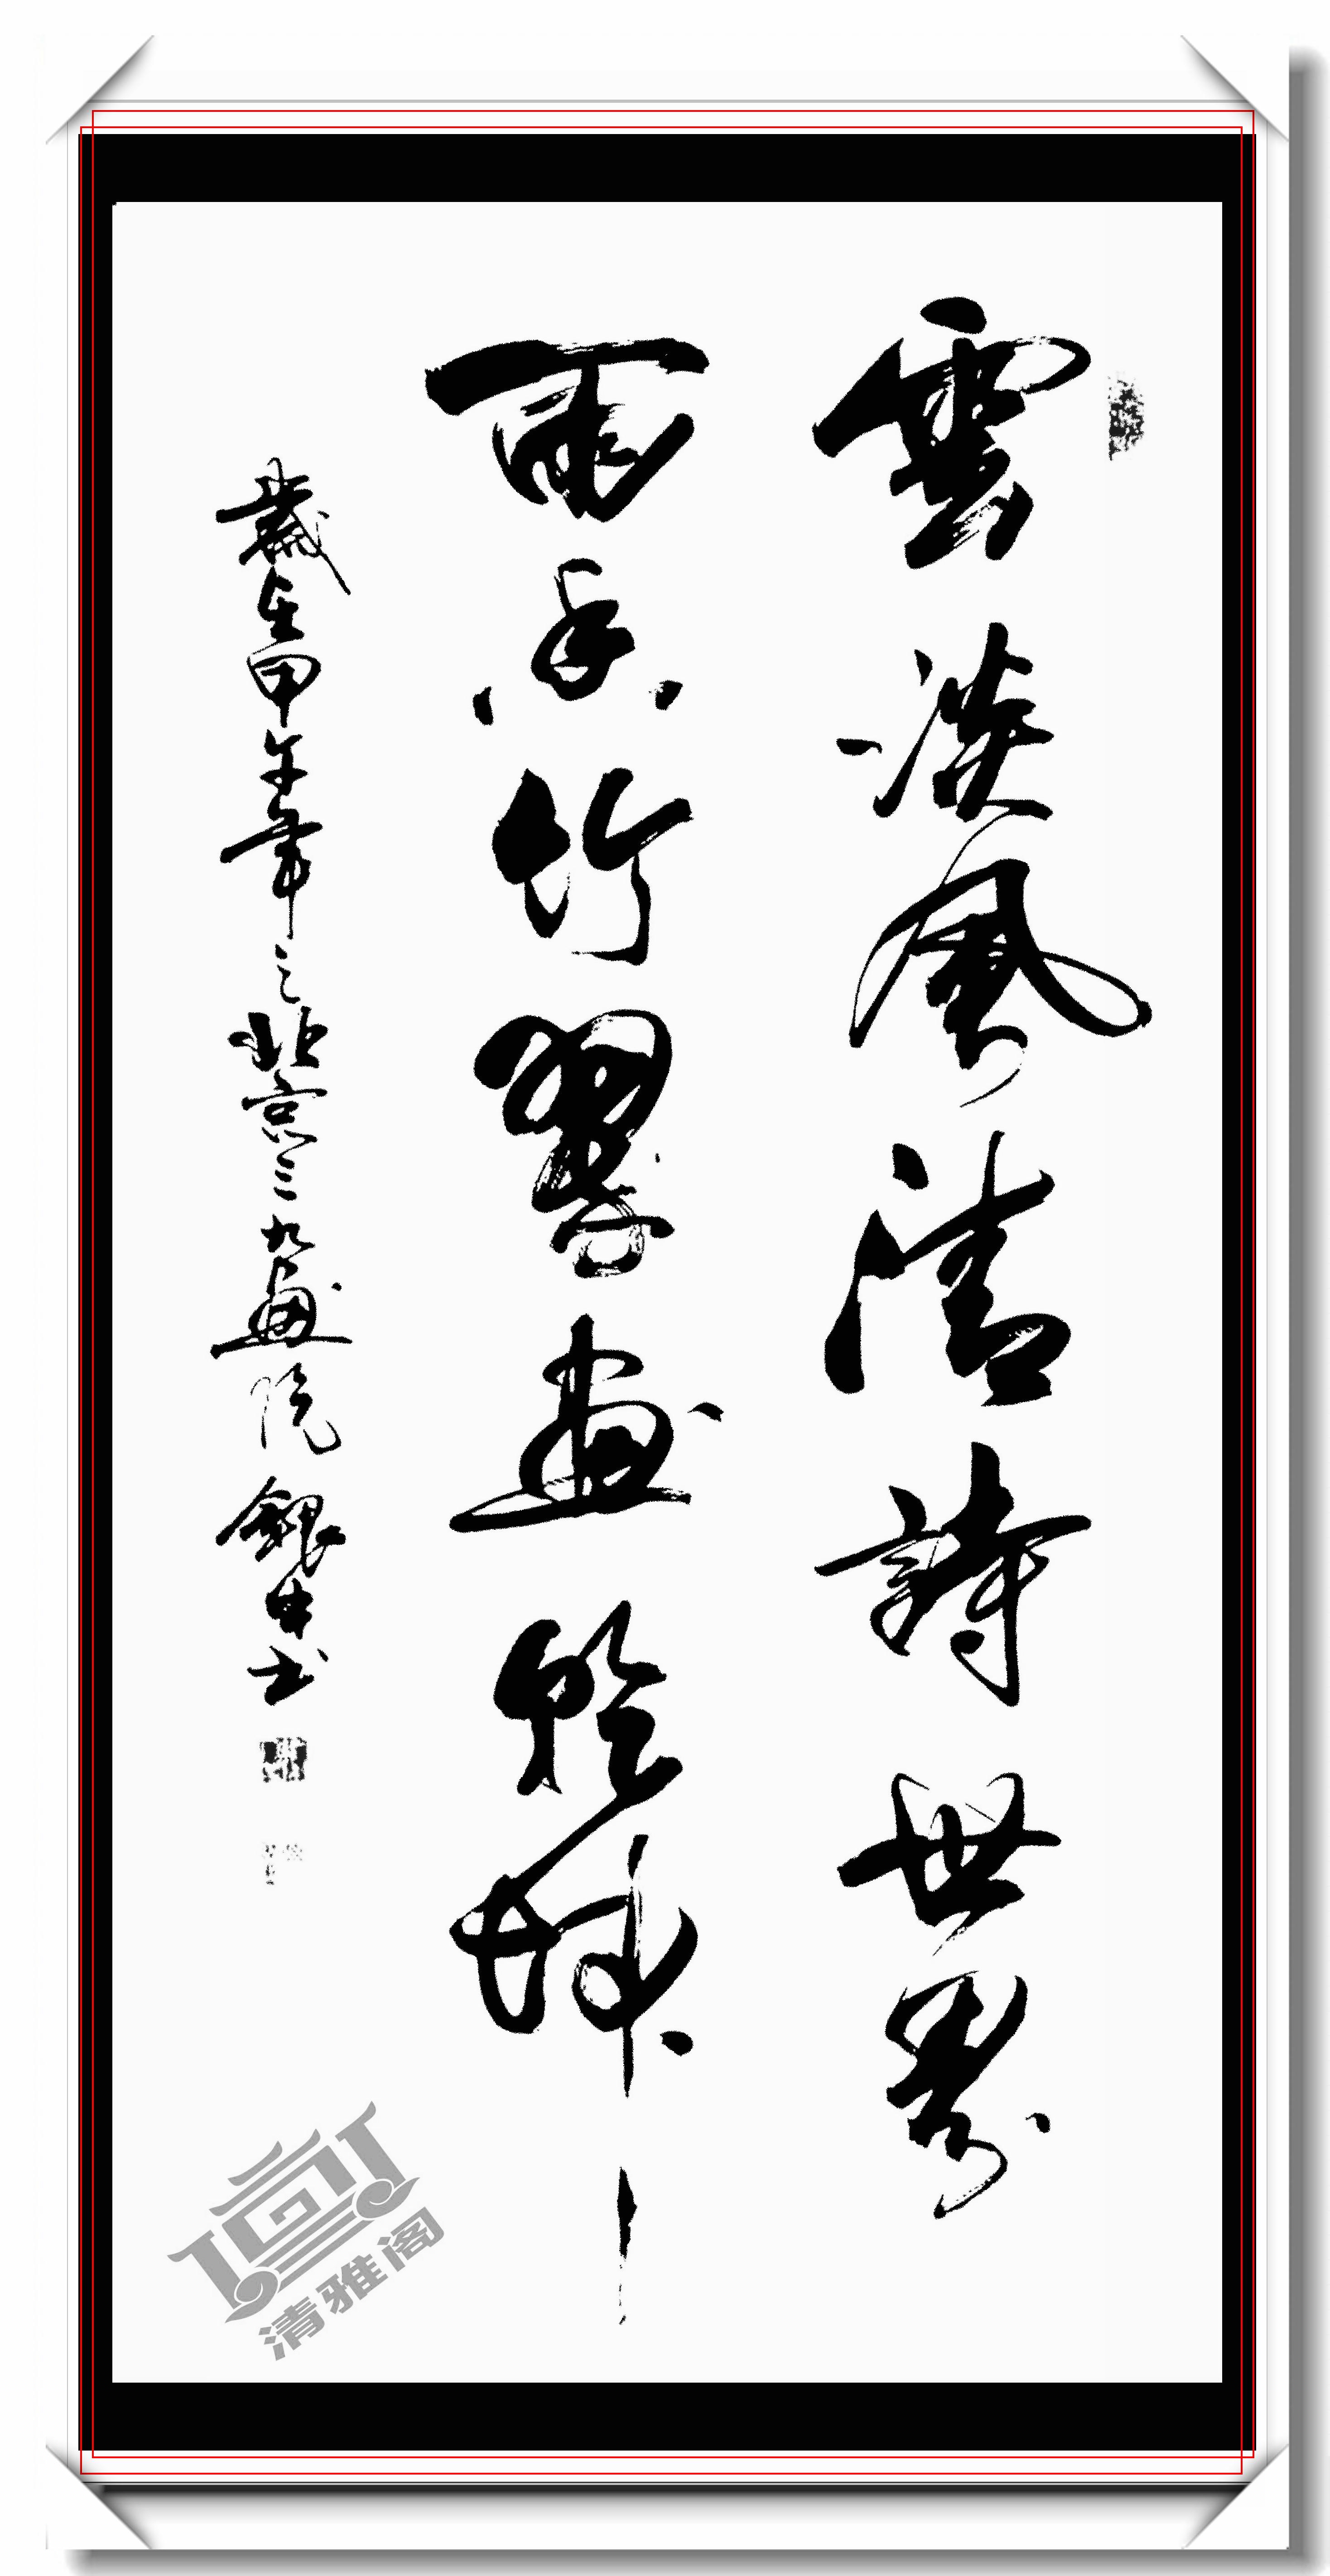 雲淡風清詩世界
雨香竹翠畫乾坤
歲在甲午年之北京三九畫院銀書
清雅阁